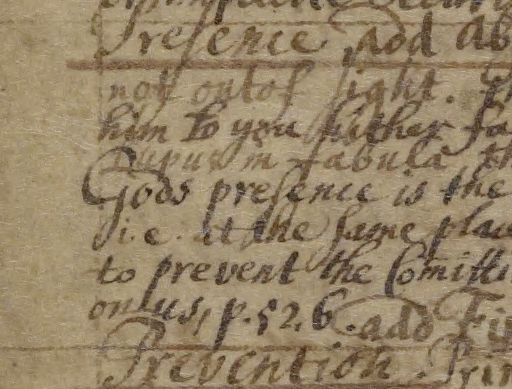 Presence add Ab
not out of sight.
him to you father fa
Lupus in fabula th
Gods presence is the
i.e. at the same plac
to prevent the Comitti
onlus, p. 52. 6. add Fi
Prevention. Prin